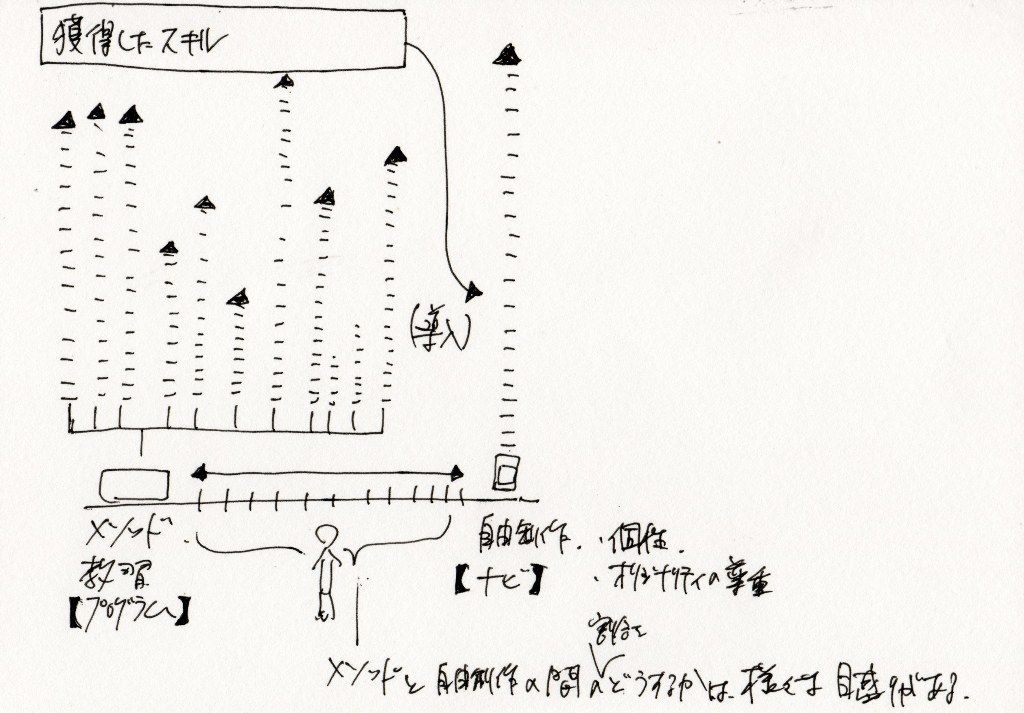 獲得したスキル
(導入)
メソッド
教習
【プログラム】
自由制作
【ナビ】
・個性
・オリジナリティの尊重
割合を
メソッドと自由制作の間のどうするかは、様々な目盛りがある。